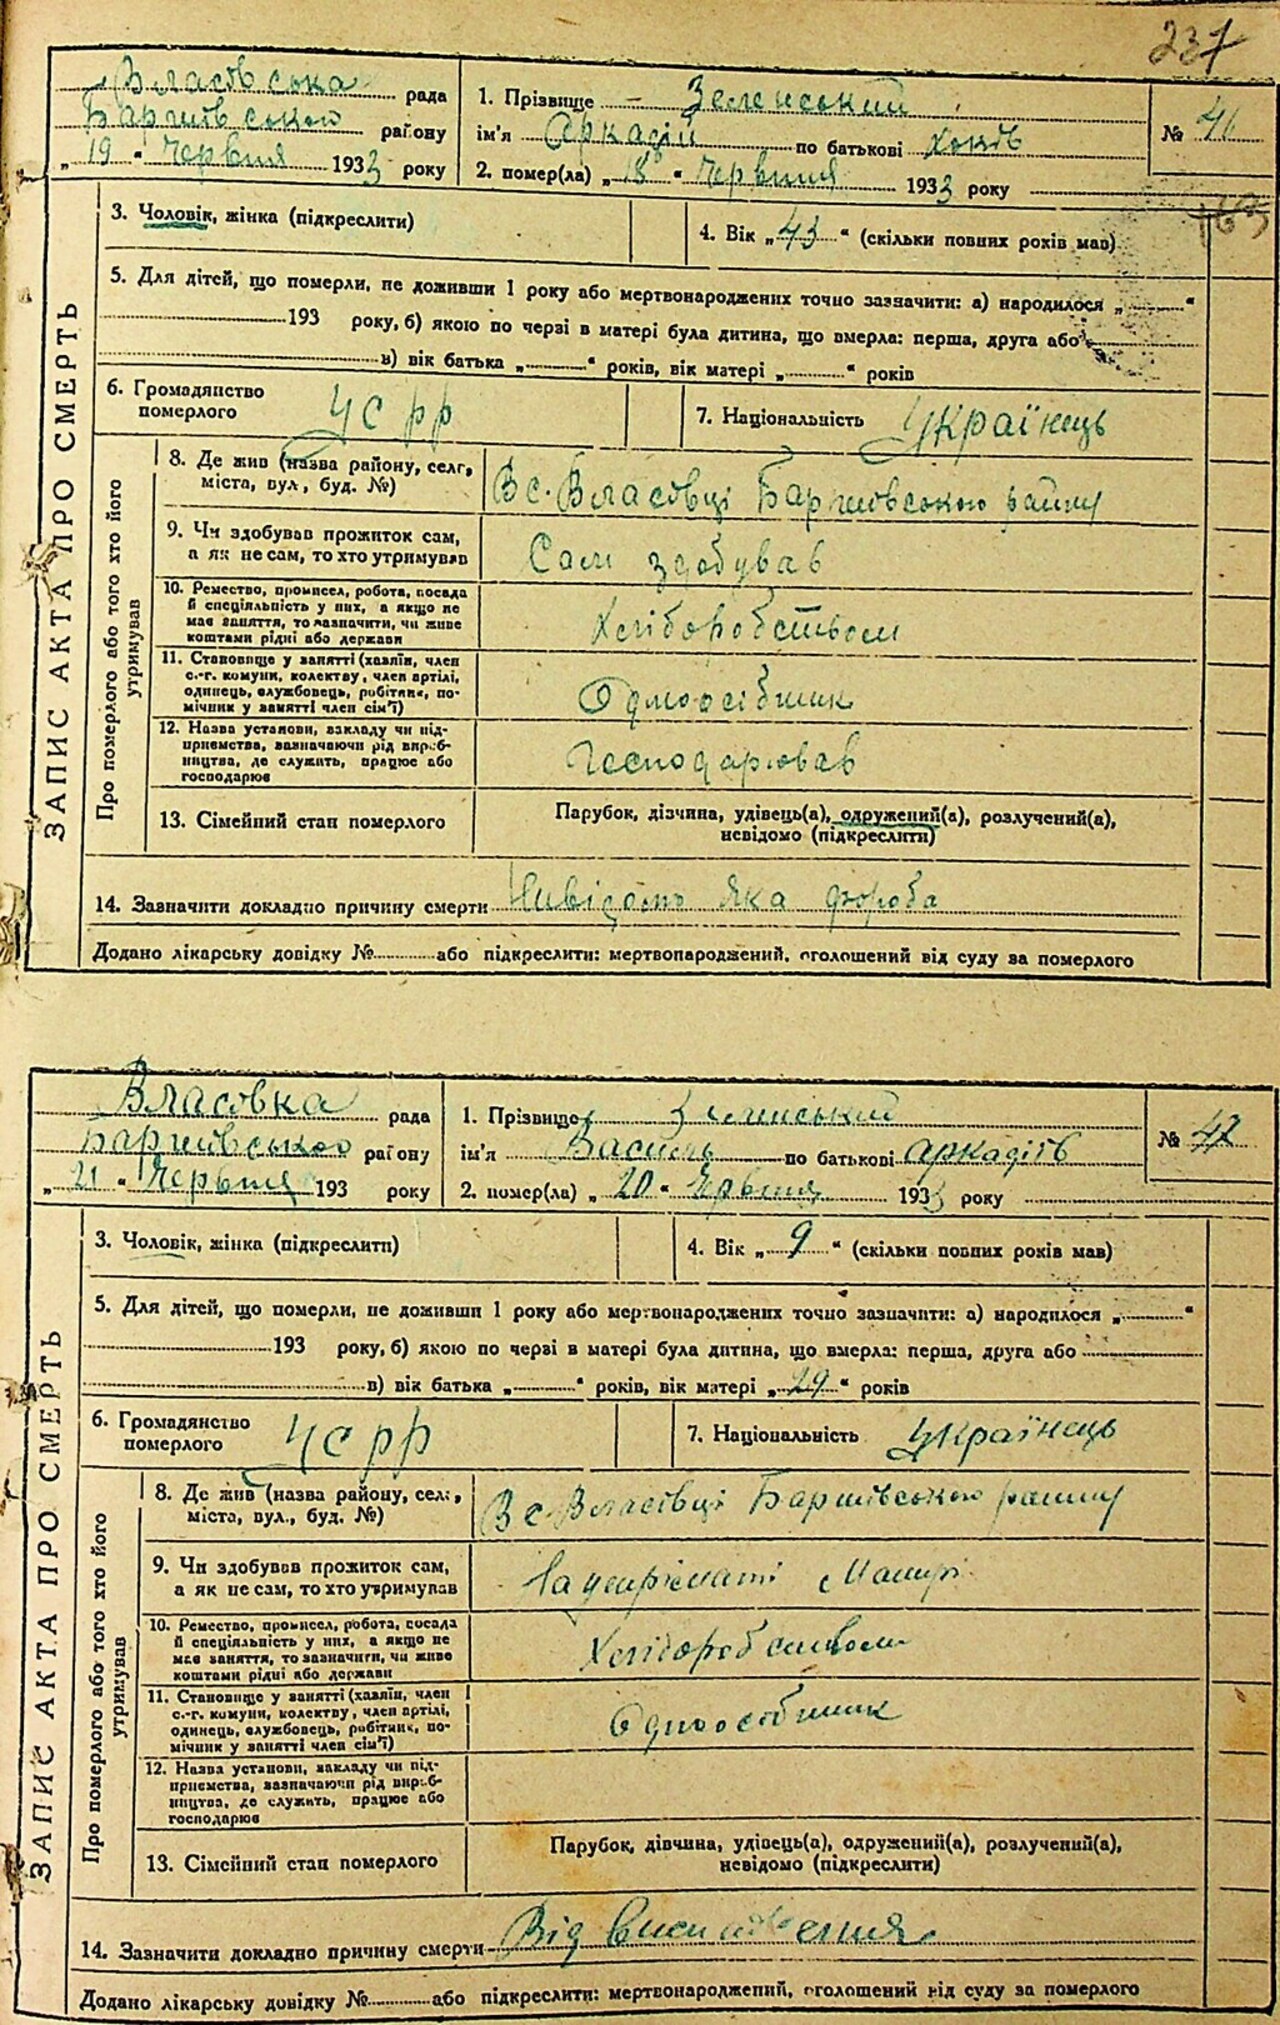 237
Власівська рада
району
„ 19 “ Червня 1933 року
1. Прізвище – Зеленський
ім'я Аркадій по батькові Яковів
2. помер(ла) „ 18 “ Червня 1933 року
№ 41
163
ЗАПИС АКТА ПРО СМЕРТЬ
3. Чоловік, жінка (підкреслити)
4. Вік „ 43 “ (скільки повних років мав)
5. Для дітей, що померли, не доживши 1 року або мертвонароджених точно зазначити: а) народилося „ “
193 року, б) якою по черзі в матері була дитина, що вмерла: перша, друга або
в) вік батька „ “ років, вік матері „ “ років
6. Громадянство
померлого
УСРР
7. Національність Українець
Про померлого або того хто його
утримував
8. Де жив (назва району, селе,
міста, вул., буд. №)
В с. Власівці
9. Чи здобував прожиток сам,
а як не сам, то хто утримував
Сам здобував
10. Ремество, промисел, робота, посада
й спеціяльність у них, а якщо не
має заняття, то зазначити, чи живе
коштами рідні або держави
Хліборобством
11. Становище у занятті (хазяїн, член
с.-г. комуни, колективу, член артілі,
одинець, службовець, робітник, по-
мічник у занятті член сім'ї)
Одноосібник
12. Назва установи, закладу чи під-
приємства, зазначаючи рід вироб-
ництва, де служить, працює або
господарює
Господарював
13. Сімейний стан померлого
Парубок, дівчина, удівець(а), одружений(а), розлучений(а),
невідомо (підкреслити)
14. Зазначити докладно причину смерти Нивідомо яка хороба
Додано лікарську довідку № або підкреслити: мертвонароджений, оголошений від суду за померлого
Власовка рада
району
„ 21 “ Червня 193 року
1. Прізвище Зеленський
ім'я Василь по батькові Аркадіїв
2. помер(ла) „ 20 “ Червня 1933 року
№ 42
ЗАПИС АКТА ПРО СМЕРТЬ
3. Чоловік, жінка (підкреслити)
4. Вік „ 9 “ (скільки повних років мав)
5. Для дітей, що померли, не доживши 1 року або мертвонароджених точно зазначити: а) народилося „ “
193 року, б) якою по черзі в матері була дитина, що вмерла: перша, друга або
в) вік батька „ “ років, вік матері „ 29 “ років
6. Громадянство
померлого
УСРР
7. Національність Українець
Про померлого або того хто його
утримував
8. Де жив (назва району, селе,
міста, вул., буд. №)
В с. Власівці
9. Чи здобував прожиток сам,
а як не сам, то хто утримував
На Матирі
10. Ремество, промисел, робота, посада
й спеціяльність у них, а якщо не
має заняття, то зазначити, чи живе
коштами рідні або держави
Хліборобством
11. Становище у занятті (хазяїн, член
с.-г. комуни, колективу, член артілі,
одинець, службовець, робітник, по-
мічник у занятті член сім'ї)
Одноосібник
12. Назва установи, закладу чи під-
приємства, зазначаючи рід вироб-
ництва, де служить, працює або
господарює
13. Сімейний стан померлого
Парубок, дівчина, удівець(а), одружений(а), розлучений(а),
невідомо (підкреслити)
14. Зазначити докладно причину смерти Від
Додано лікарську довідку № або підкреслити: мертвонароджений, оголошений від суду за померлого